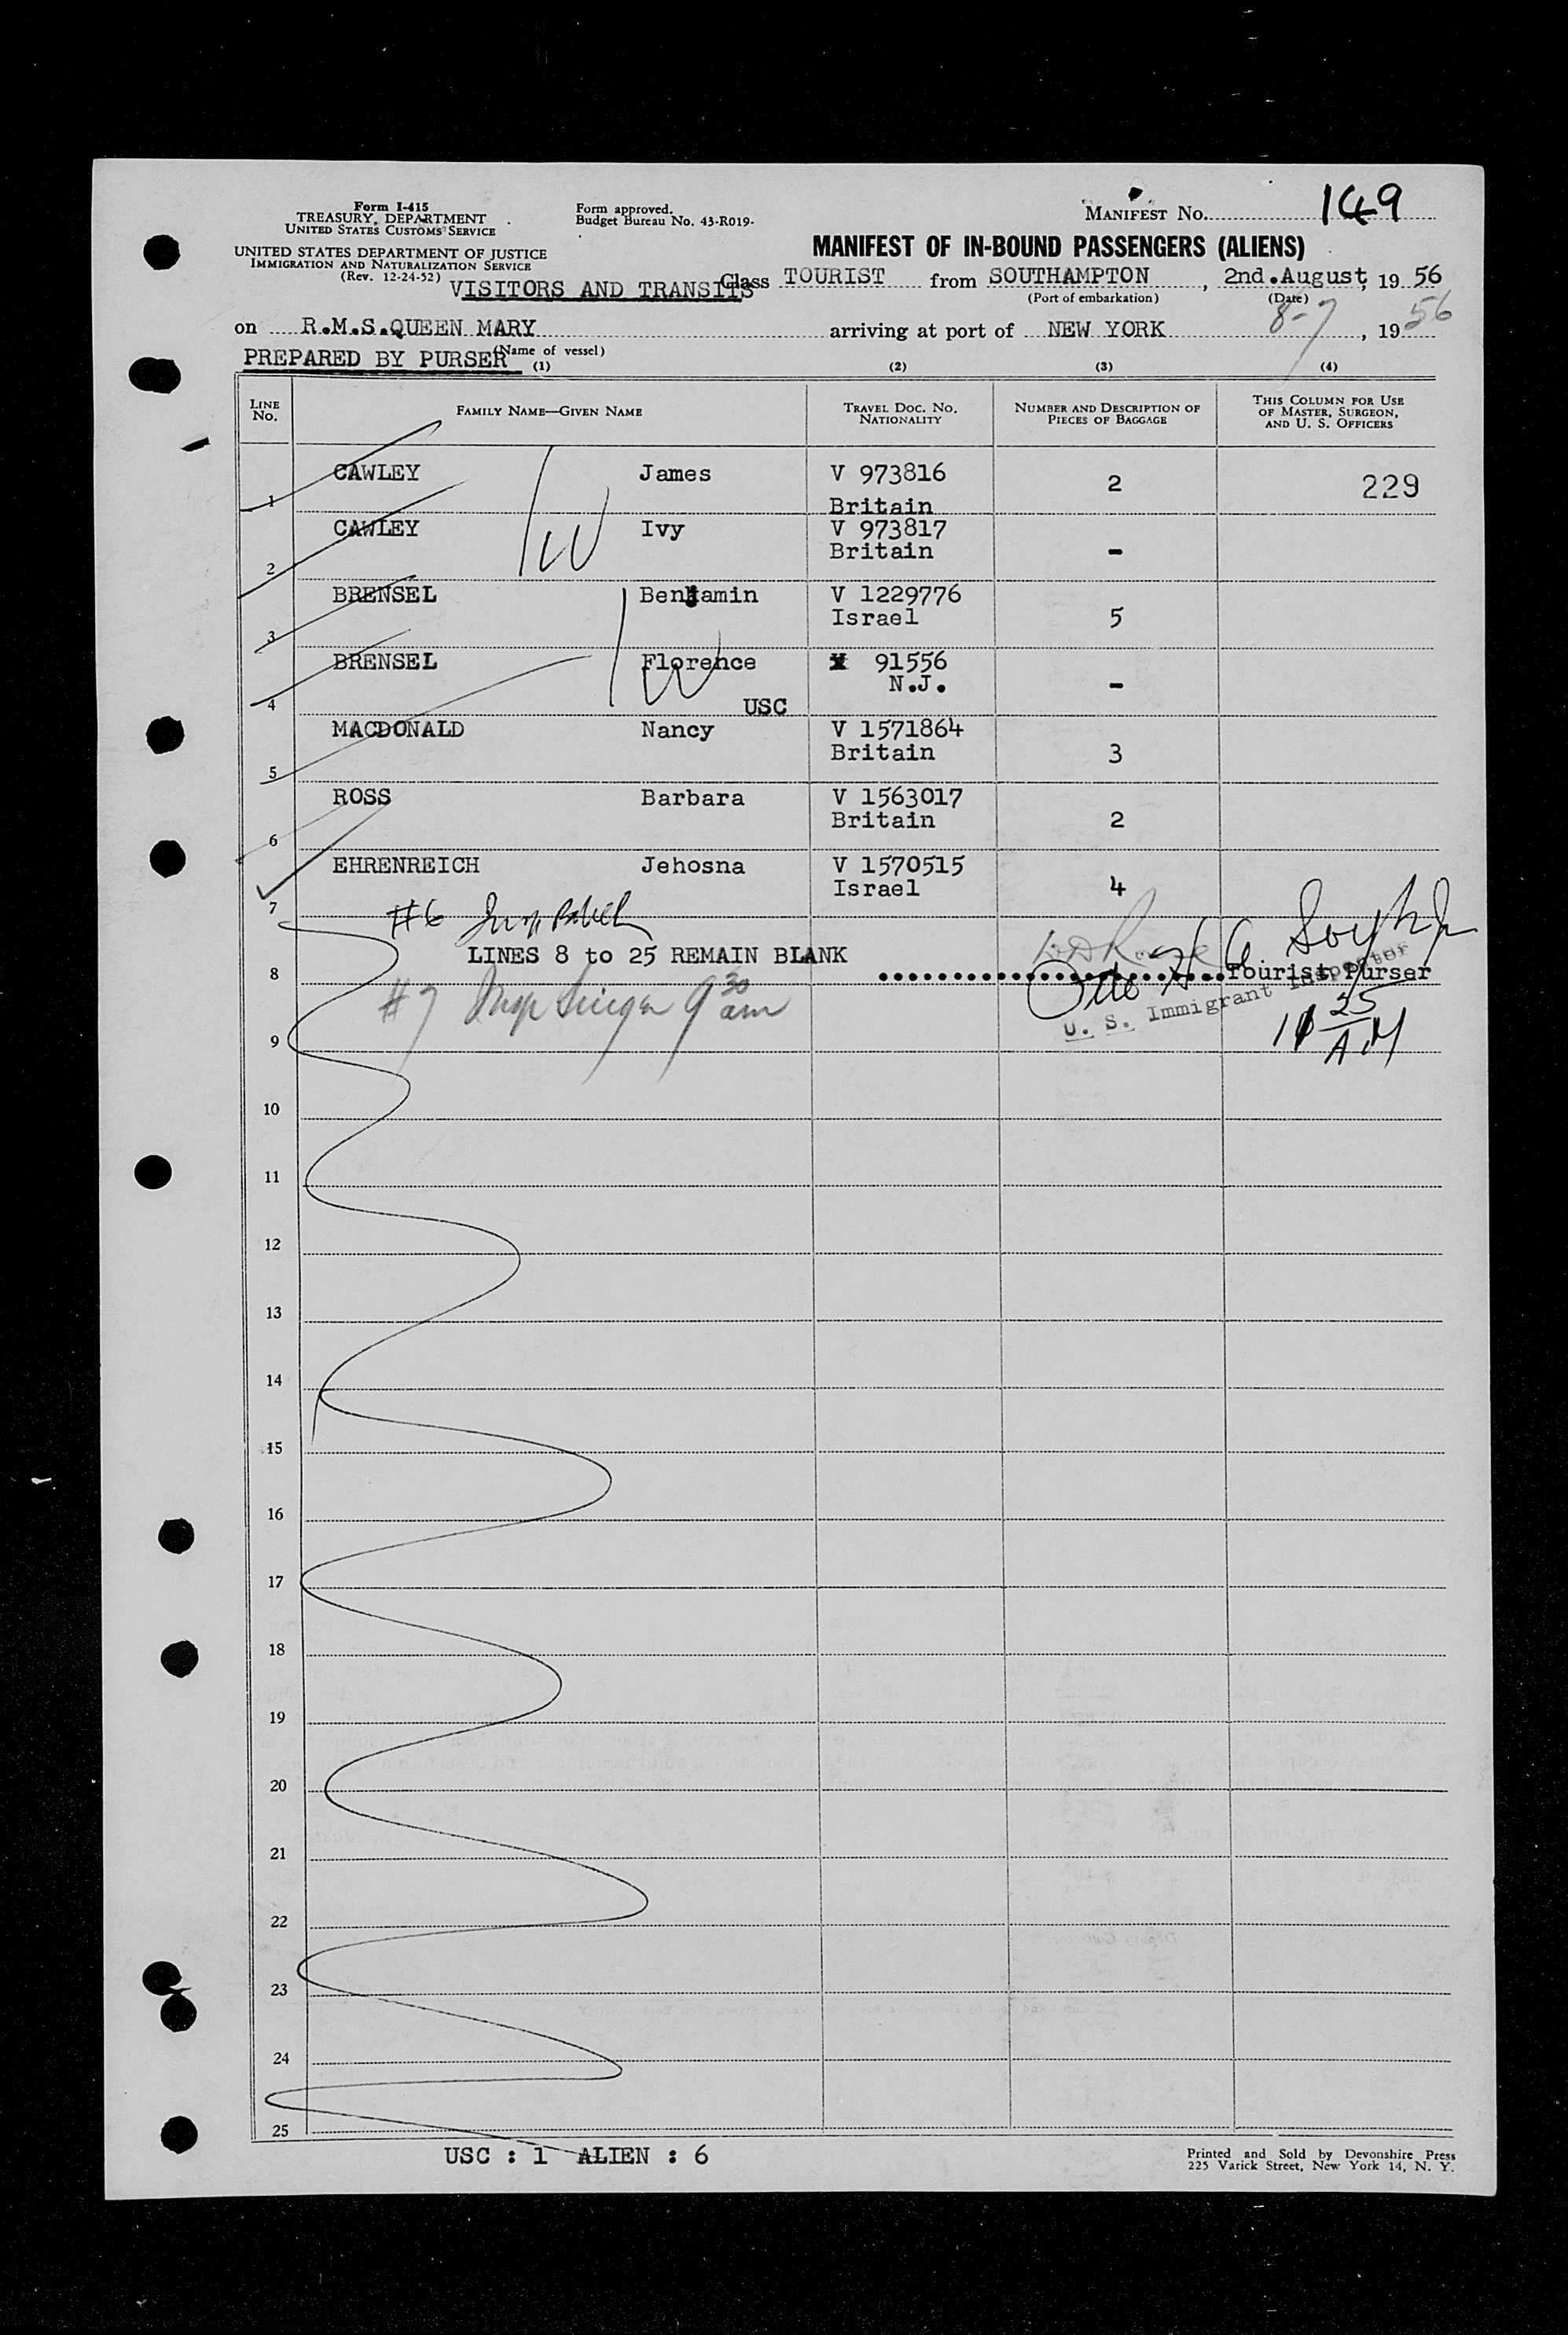 Form I-415
TREASURY DEPARTMENT
UNITED STATES CUSTOMS SERVICE
UNITED STATES DEPARTMENT OF JUSTICE
IMMIGRATION AND NATURALIZATION SERVICE
(Rev. 12-24-52)
Form approved.
Budget Bureau No. 43-R019-
MANIFEST No. 149
MANIFEST OF IN-BOUND PASSENGERS (ALIENS)
VISITORS AND TRANSITS Class TOURIST from SOUTHAMPTON, 2nd.August, 19 56
(Port of embarkation) (Date)
on R.M.S.QUEEN MARY arriving at port of NEW YORK 8-7, 19 56
(Name of vessel)
PREPARED BY PURSER
(1) (2) (3) (4)
LINE No. FAMILY NAME—GIVEN NAME TRAVEL DOC. NO. NATIONALITY NUMBER AND DESCRIPTION OF PIECES OF BAGGAGE THIS COLUMN FOR USE OF MASTER, SURGEON, AND U. S. OFFICERS
1 CAWLEY James V 973816 Britain 2 229
2 CAWLEY Ivy V 973817 Britain -
3 BRENSEL Benjamin V 1229776 Israel 5
4 BRENSEL Florence USC 91556 N.J. -
5 MACDONALD Nancy V 1571864 Britain 3
6 ROSS Barbara V 1563017 Britain 2
7 EHRENREICH Jehosna V 1570515 Israel 4
#6
LINES 8 to 25 REMAIN BLANK
Tourist Purser
8
#7 Insp Singer 9 30 am
U. S. Immigrant Inspector
11 25 AM
9
10
11
12
13
14
15
16
17
18
19
20
21
22
23
24
25
USC : 1 ALIEN : 6
Printed and Sold by Devonshire Press
225 Varick Street, New York 14, N. Y.